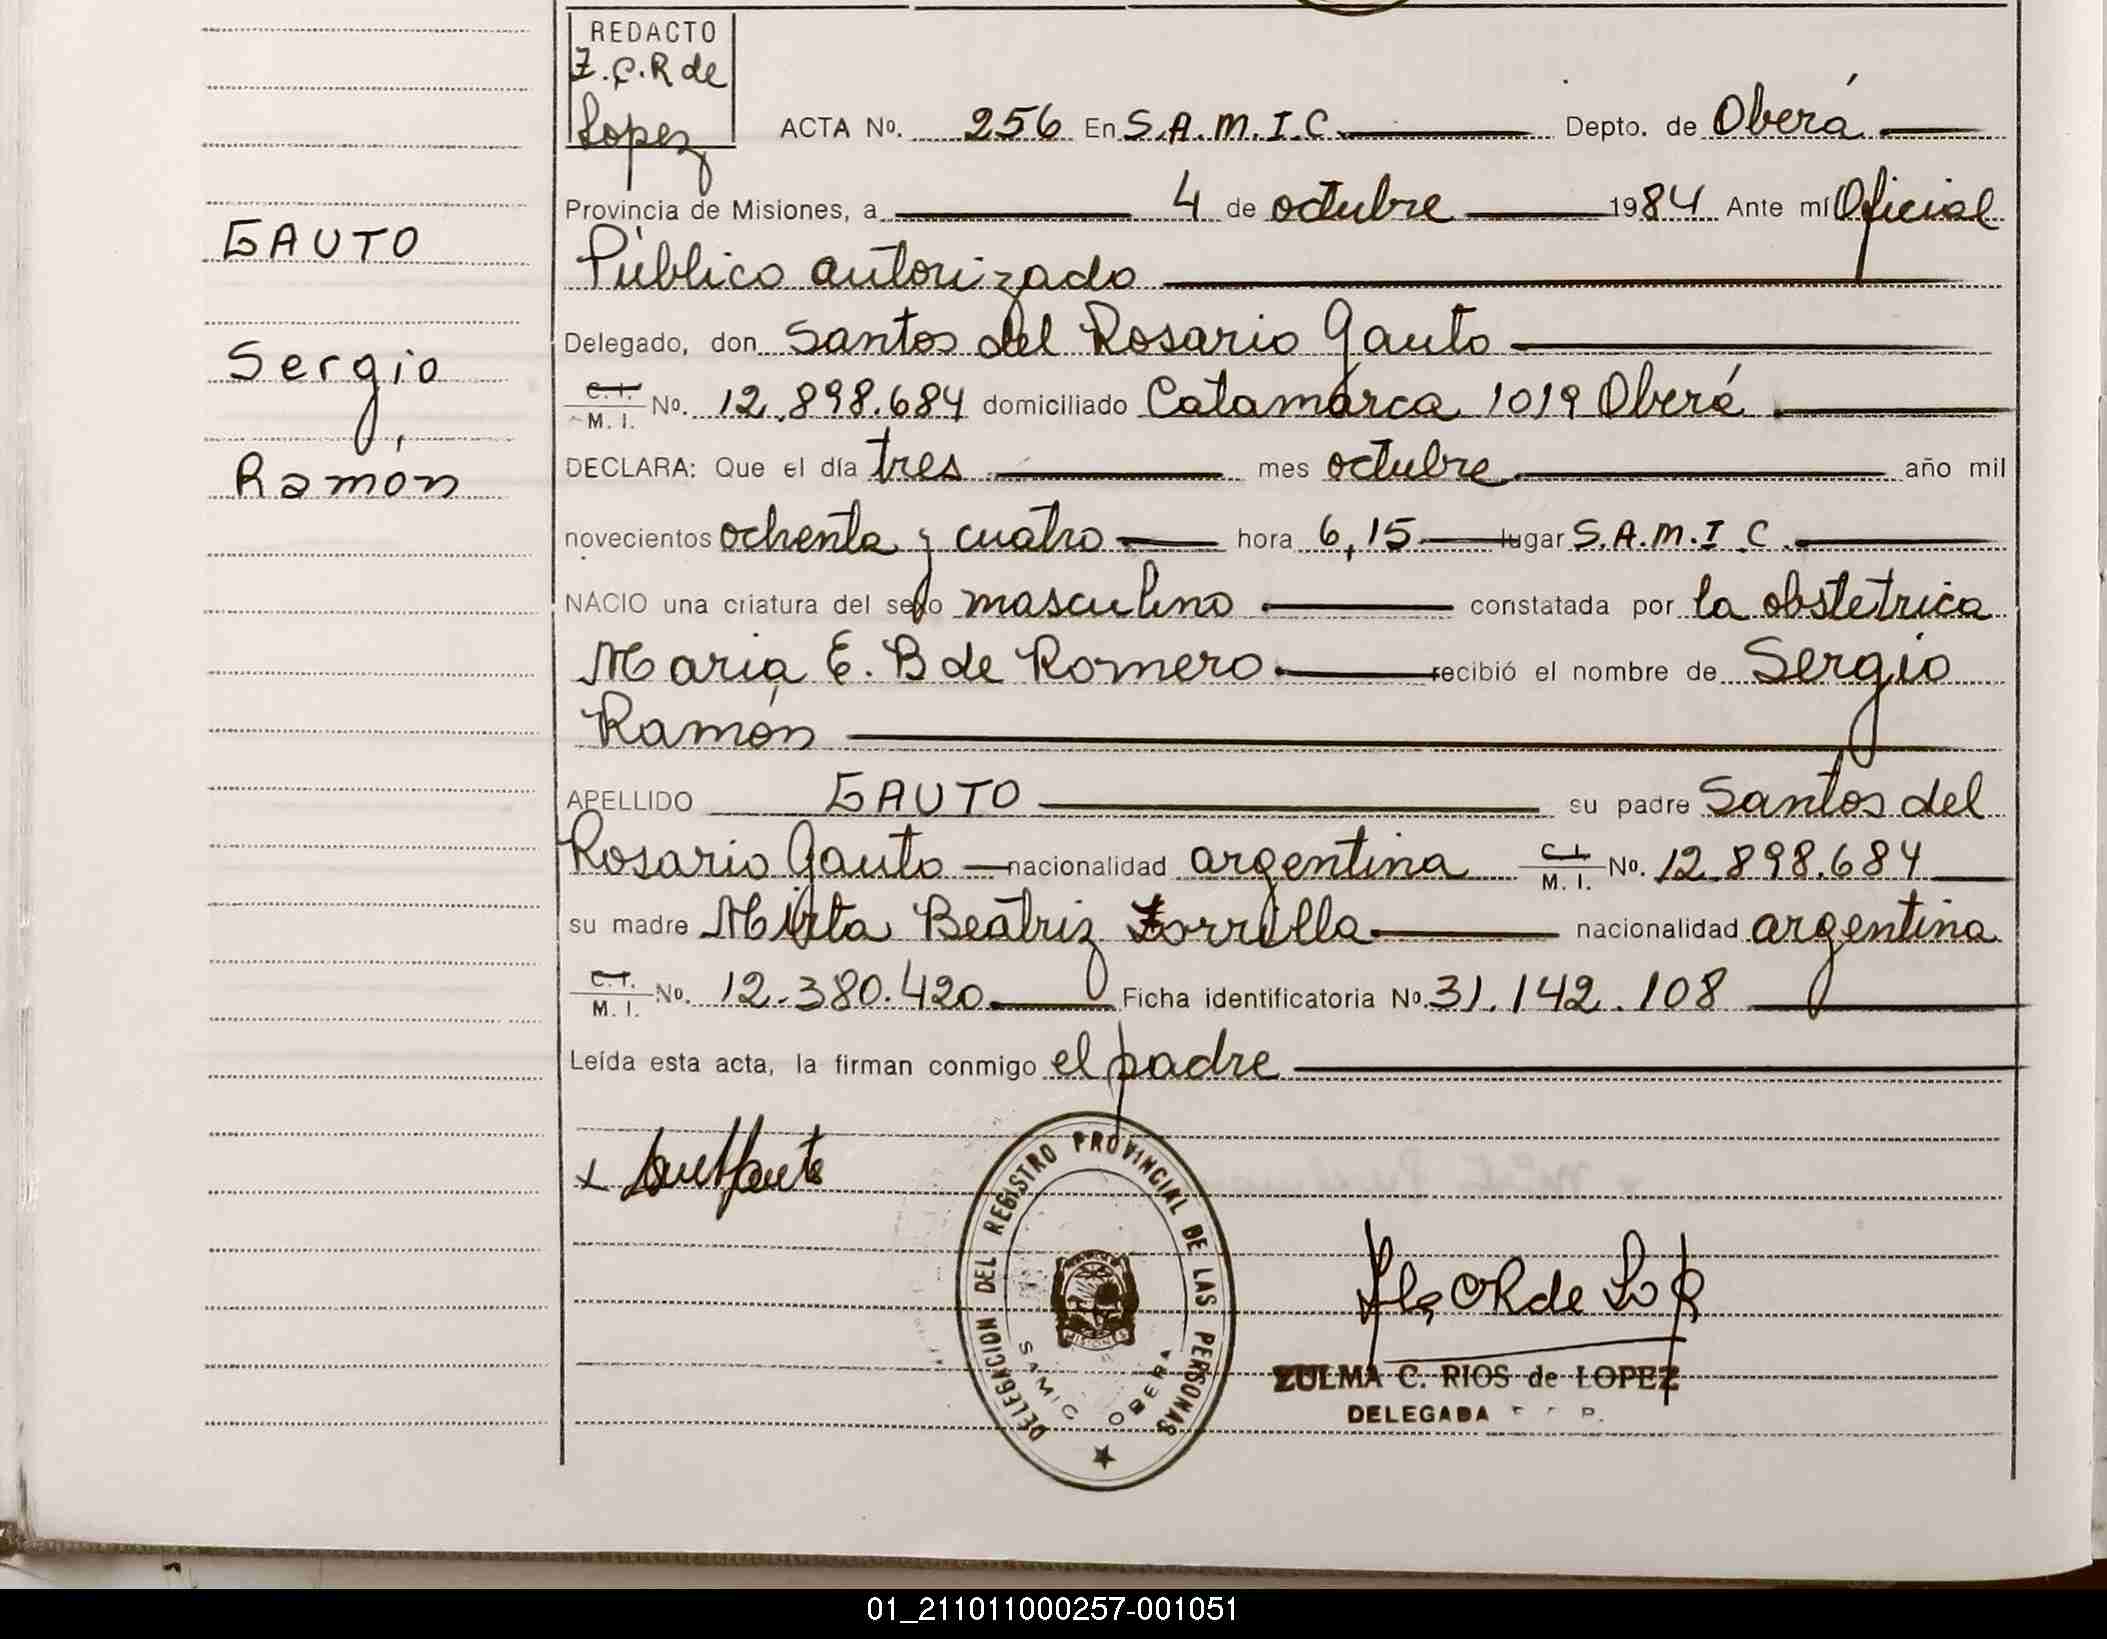 REDACTO
Z.C.R de
Lopez
ACTA No. 256 En S.A.M.I.C. Depto. de Oberá
Provincia de Misiones, a 4 de octubre 1984 Ante mí Oficial
Público autorizado
Delegado, don Santos del Rosario Gauto
C.I. M.I. No. 12.898.684 domiciliado Catamarca 1019 Oberá
DECLARA: Que el día tres mes octubre año mil
novecientos ochenta y cuatro hora 6,15 lugar S.A.M.I.C.
NACIO una criatura del sexo masculino constatada por la obstetrica
Maria E. B de Romero recibió el nombre de Sergio
Ramón
APELLIDO GAUTO su padre Santos del
Rosario Gauto nacionalidad argentina C.I. M.I. No. 12.898.684
su madre Mirta Beatriz Zorrilla nacionalidad argentina
C.I. M.I. No. 12.380.420 Ficha identificatoria No. 31.142.108
Leída esta acta, la firman conmigo el padre
GAUTO
Sergio
Ramón
DELEGACION DEL REGISTRO PROVINCIAL DE LAS PERSONAS
MISIONES
SAMIC OBERA
ZULMA C. RIOS de LOPEZ
DELEGADA
01_211011000257-001051